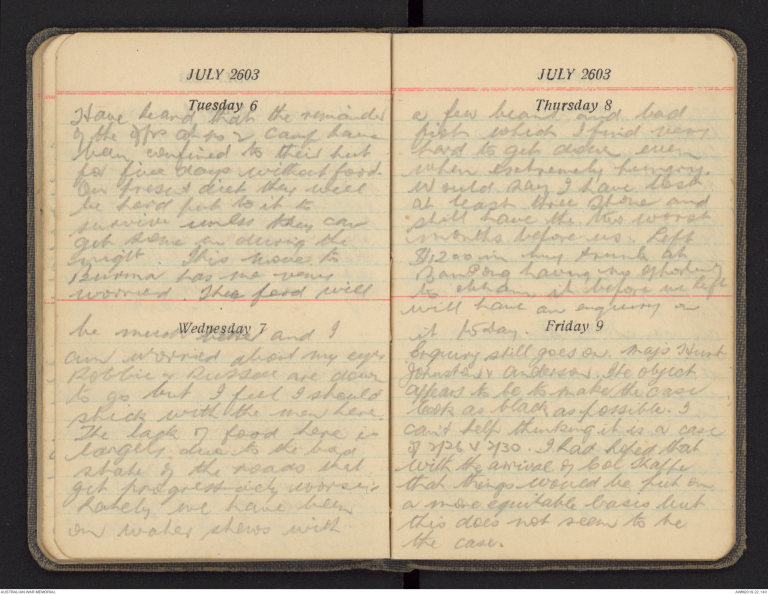 JULY 2603
Tuesday 6
Have heard that the remainder
of the offrs at no 2 Camp have
been confined to their hut
for five days without food.
On present diet they will
be hard put to it to
survive unless they can
get some in during the
night. This move to
Burma has me very
worried. The food will
Wednesday 7
be much and I
am worried about my eyes
Robbie & Russell are down
to go but I feel I should
stick with the men here.
The lack of food here is
largely due to the bad
state of the roads that
get progressively worse.
Lately we have been
on water stews with
JULY 2603
Thursday 8
a few beans and bad
fish which I find very
hard to get down even
when extremely hungry.
Would say I have lost
at least three stone and
still have the two worst
months before us. Left
$1200 in my trunk at
Bampong having no
to obtain it before we left
will have an enquiry on
it today.
Friday 9
Enquiry still goes on. Majs Hunt
Johnston & Anderson. The object
appears to be to make the case
look as black as possible. I
can't help thinking it is a case
of 2/26 v 2/30. I had hoped that
with the arrival of Col
that things would be put on
a more equitable basis but
this does not seem to be
the case.
AUSTRALIAN WAR MEMORIAL